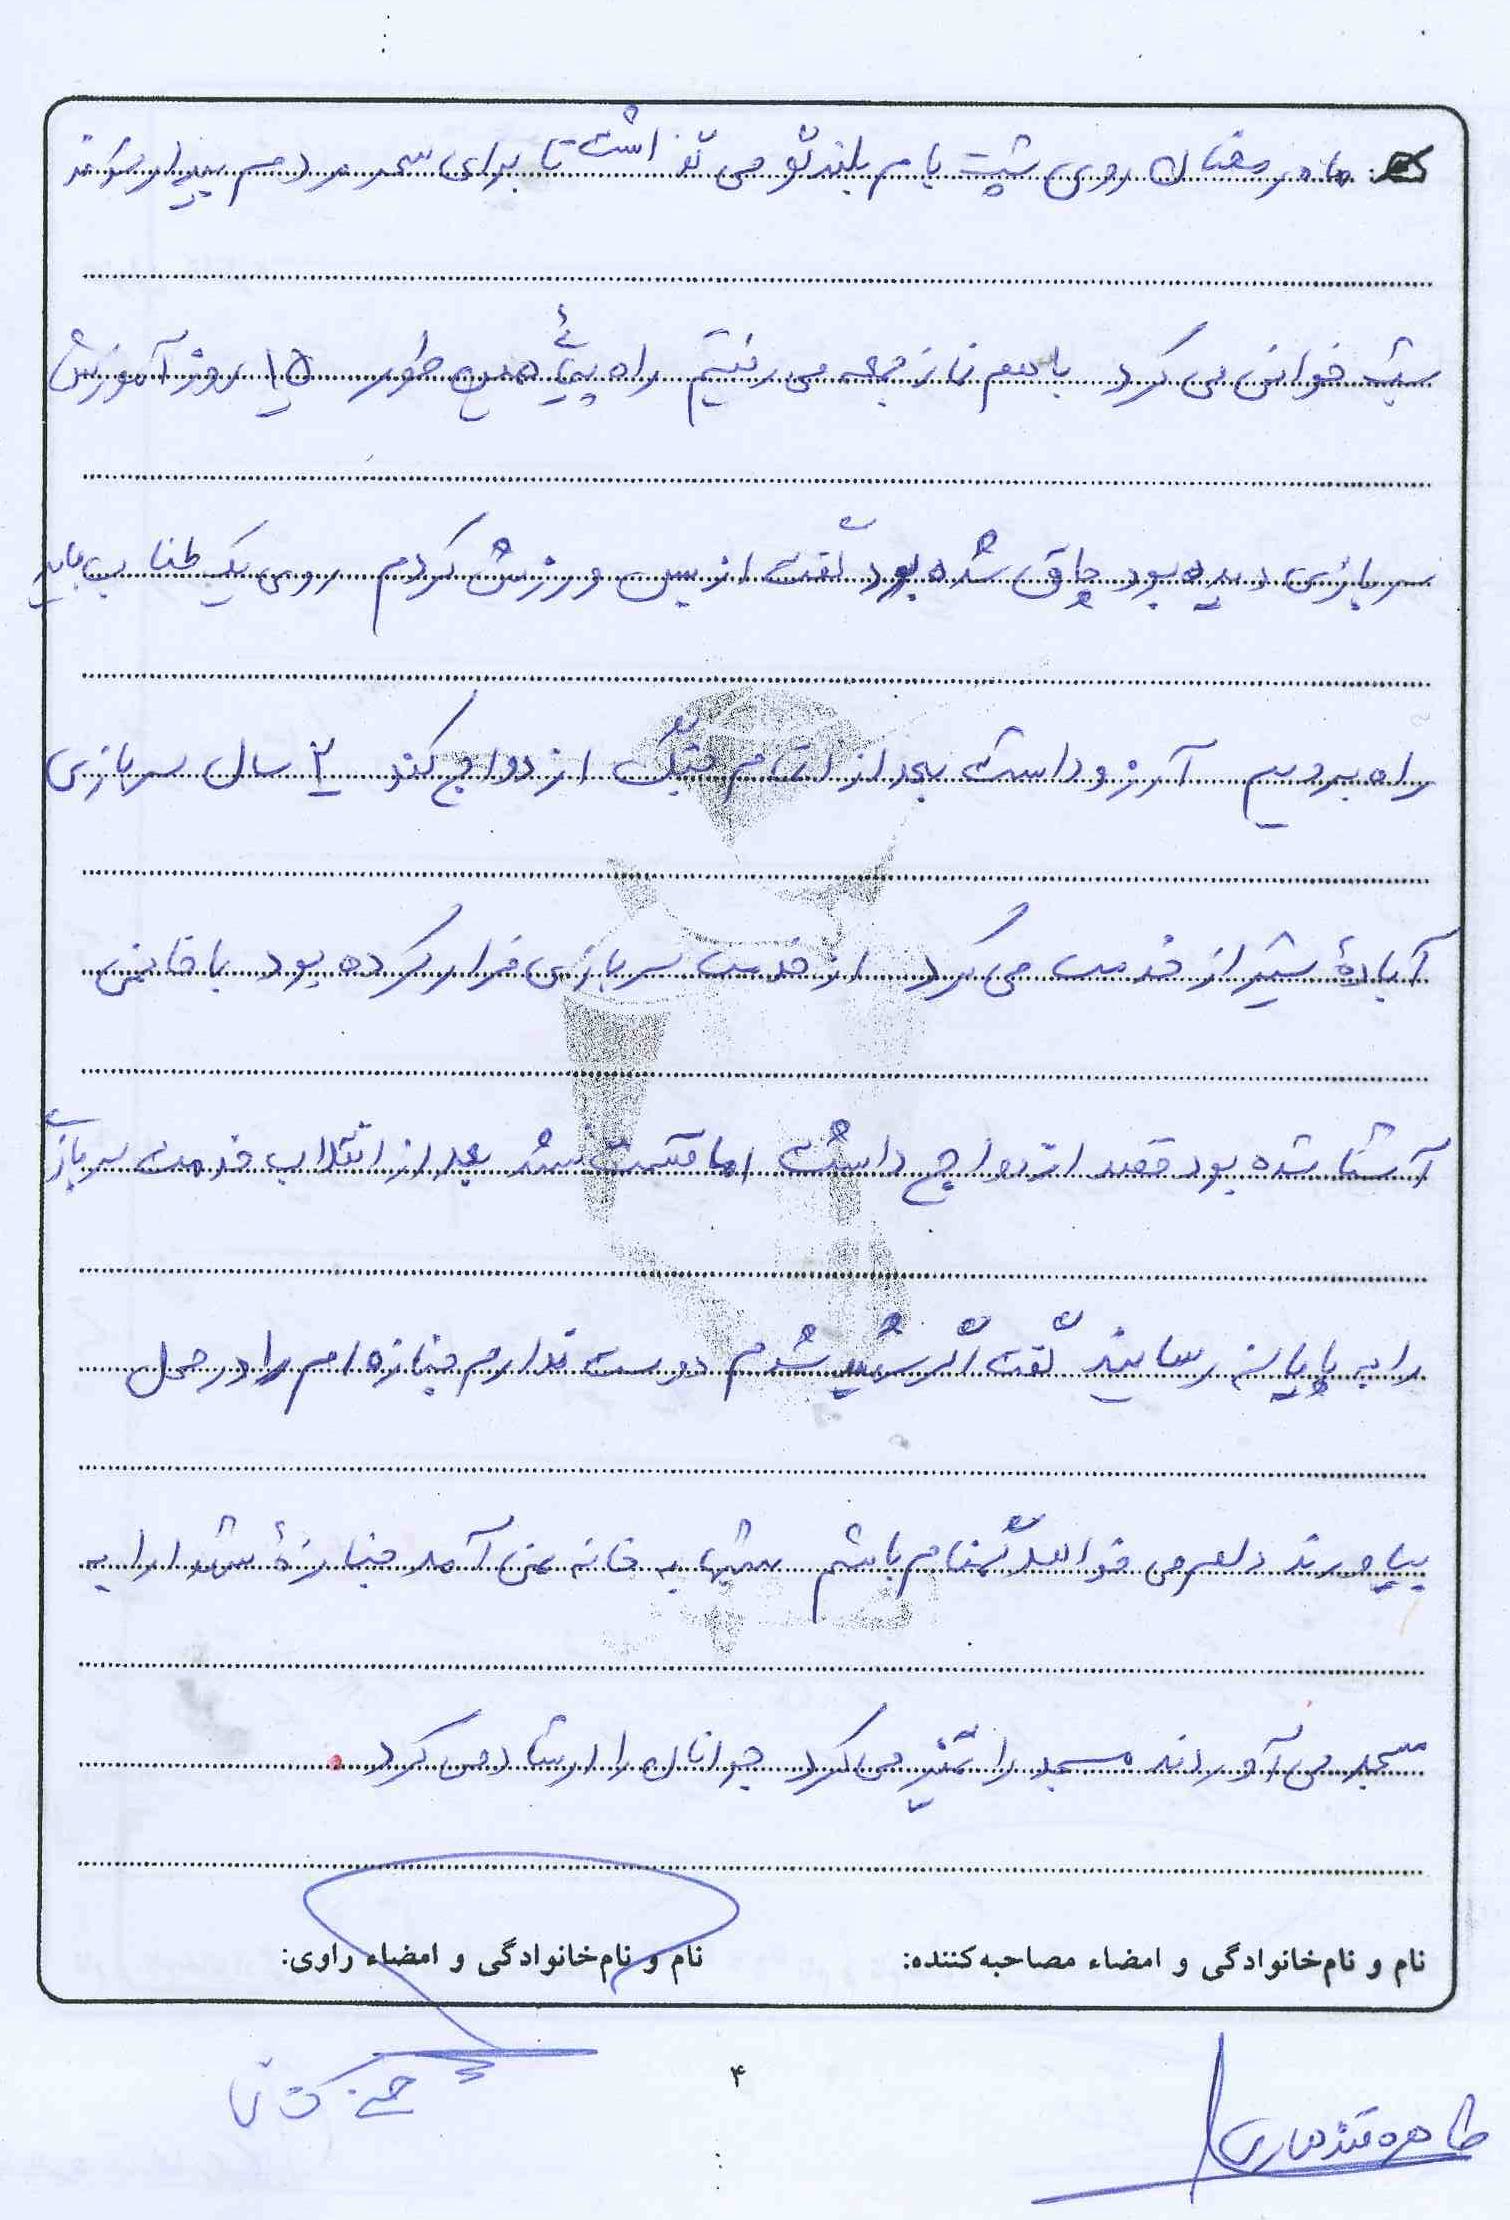 ماه رمضان روی پشت بام بلندگو می گذاشت تا برای سحر مردم بیدار شوند
شب خوانی می کرد باهم نماز جمعه می رفتیم راه پیمائی همین طور ۱۵ روز آموزش
سربازی دیده بود چاق شده بود گفت از بس ورزش کردم روی یک طناب باید
راه برویم آرزو داشت بعد از اتمام جنگ ازدواج کند ۲ سال سربازی
آبادهٔ شیراز خدمت می کرد از خدمت سربازی فرار کرده بود با خانمی
آشنا شده بود قصد ازدواج داشت اما قسمت نشد بعد از انقلاب خدمت سربازی
را به پایان رسانید گفت اگر شهید شدم دوست ندارم جنازه ام را در محل
بیاورند دلم می خواهد گمنام باشم شبها به خانه نمی آمد جنازهٔ شهدا را به
مسجد می آوردند مسجد را تمیز می کرد جوانان را ارشاد می کرد.
نام و نام‌خانوادگی و امضاء مصاحبه‌کننده: نام و نام‌خانوادگی و امضاء راوی:
۴
طاهره قندهاری